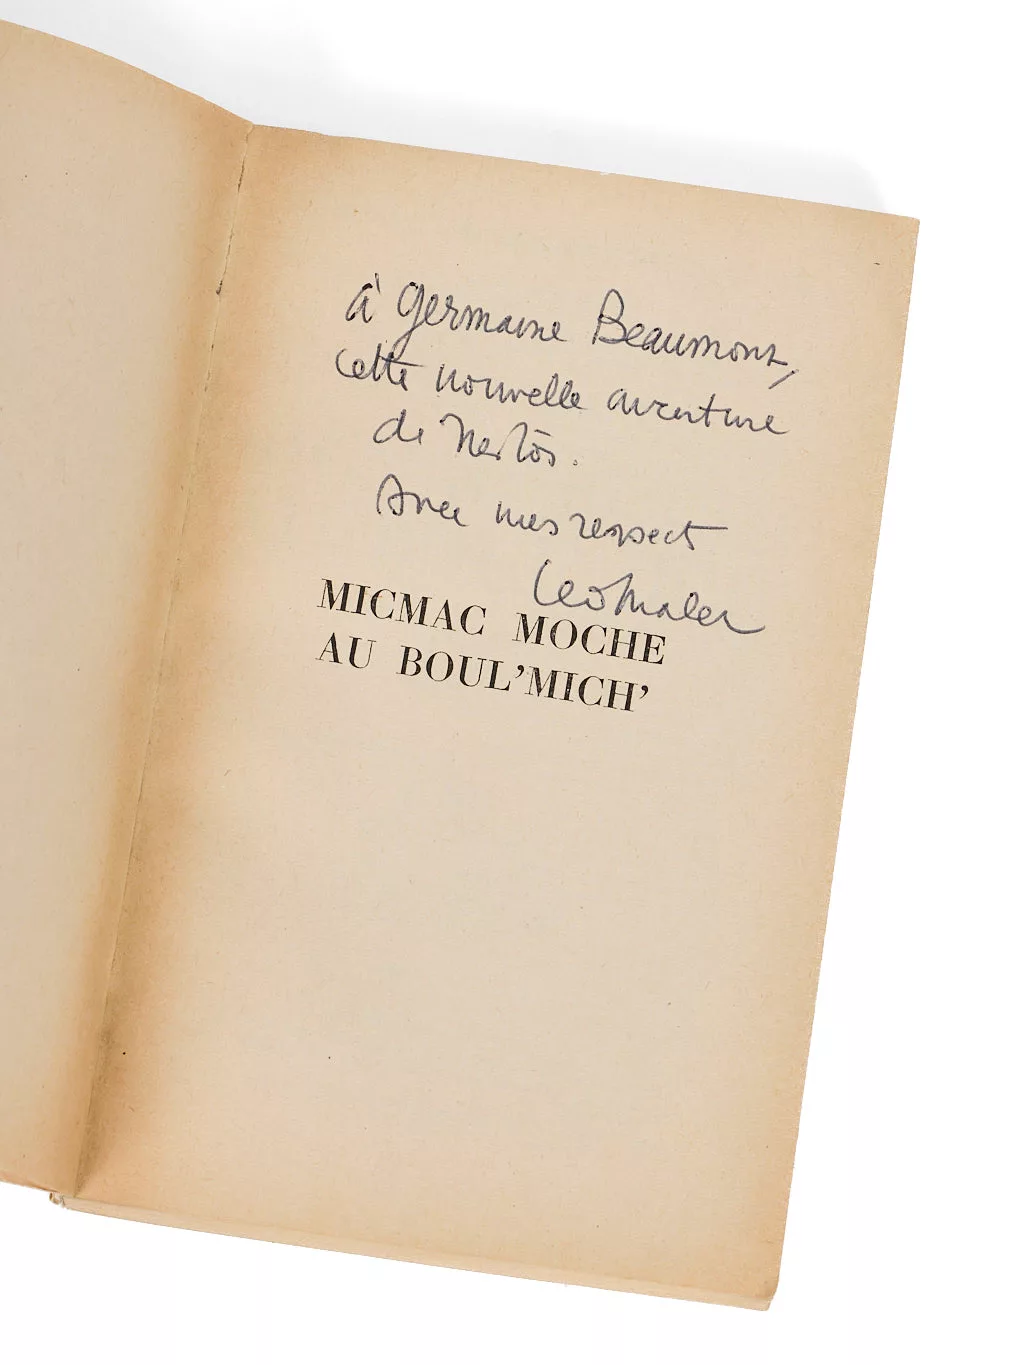 à Germaine Beaumont,
cette nouvelle aventure
de Nestor.
Avec mes respect
Léo Malet
MICMAC MOCHE
AU BOUL'MICH'